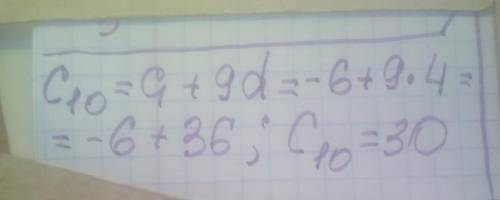 C₁₀ = C₁ + 9d = -6 + 9 · 4 =
= -6 + 36 ; C₁₀ = 30